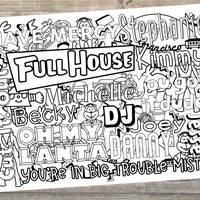 HAVE MERCY
Stephanie
Francisco
FULL HOUSE
Kimmy
Michelle
Becky
DJ
Joey
OH MY
LANTA
DANNY
YOU'RE IN BIG TROUBLE MIST